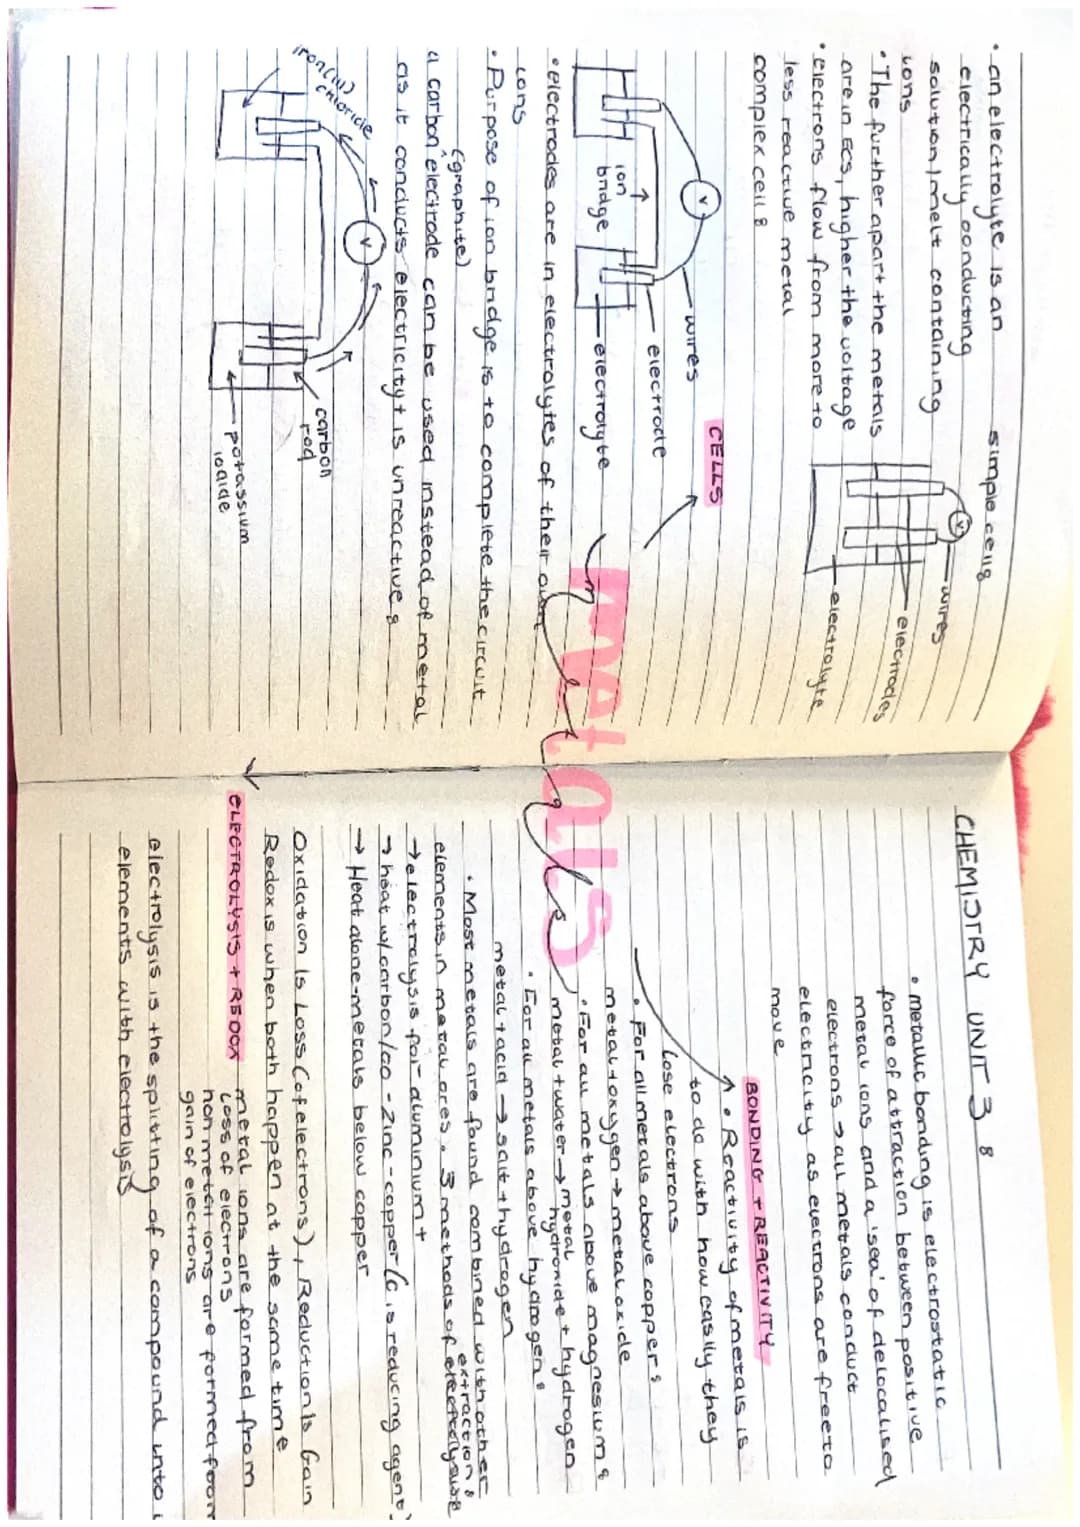 • an electrolyte is an
electrically conducting
solution/melt containing
ions
• The further apart the metals
are in ECS, higher the voltage
• electrons flow from more to
less reactive metal
complex cell:
simple cell:
wires
electrodes
electrolyte
V
V
ion
bridge
wires
electrode
electrolyte
CELLS
• electrodes are in electrolytes of their own
ions
• Purpose of ion bridge is to complete the circuit
(graphite)
a carbon electrode can be used instead of metal
as it conducts electricity + is unreactive:
iron(III)
chloride
V
carbon
rod
potassium
iodide
metals
metals
CHEMISTRY UNIT 3:
• metallic bonding is electrostatic
force of attraction between positive
metal ions and a 'sea' of delocalised
electrons → all metals conduct
electricity as electrons are free to
move
BONDING + REACTIVITY
• Reactivity of metals is
to do with how easily they
lose electrons
• For all metals above copper:
metal + oxygen → metal oxide
• For all metals above magnesium:
metal + water → metal hydroxide + hydrogen
• For all metals above hydrogen:
metal + acid → salt + hydrogen
• Most metals are found combined with other
elements in metal ores. 3 methods of extraction:
→ electrolysis for aluminium +
→ heat w/carbon/co - zinc - copper (C is reducing agent)
→ Heat alone - metals below copper
Oxidation Is Loss (of electrons), Reduction Is Gain
Redox is when both happen at the same time
ELECTROLYSIS + REDOX
metal ions are formed from
loss of electrons
non metal ions are formed from
gain of electrons
electrolysis is the splitting of a compound into i
elements with electrolysis